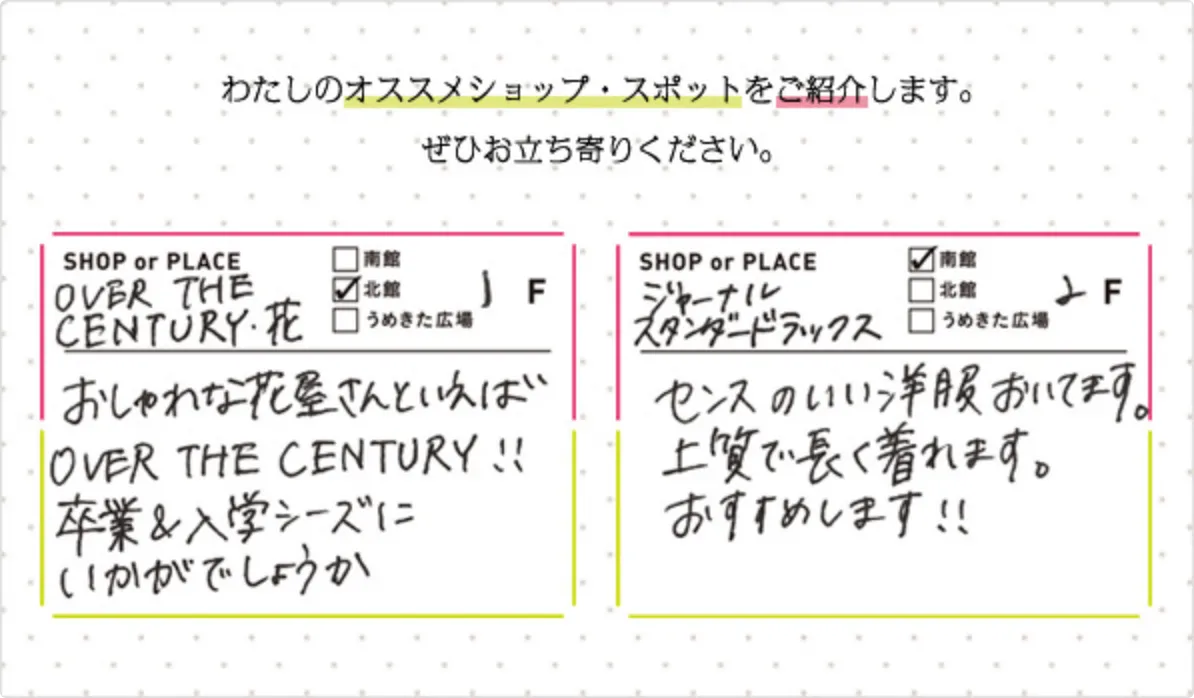 わたしのオススメショップ・スポットをご紹介します。
ぜひお立ち寄りください。
SHOP or PLACE
OVER THE
CENTURY・花
南館
北館
うめきた広場
1 F
おしゃれな花屋さんといえば
OVER THE CENTURY!!
卒業&入学シーズに
いかがでしょうか
SHOP or PLACE
ジャーナル
スタンダードラックス
南館
北館
うめきた広場
2 F
センスのいい洋服おいてます。
上質で長く着れます。
おすすめします!!